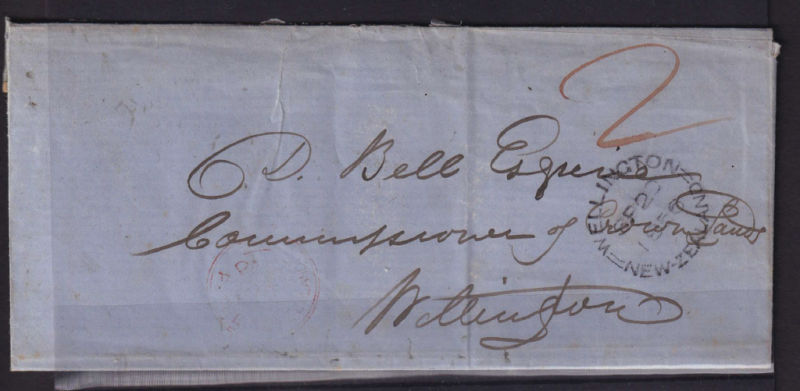 2
D. Bell Esquire
Commissioner of Crown Lands
Wellington
WELLINGTON
NEW-ZEALAND